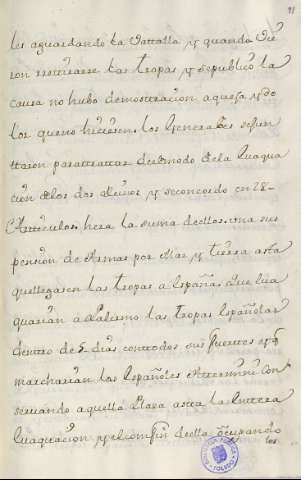 91
les aguardando la vattalla y quando Vie
ron rretirarse las tropas y se publicó la
causa no hubo demostracion a quexa y do
lor que no hiciesen. los Generales se Jun
ttaron para tratar del modo de la Evaqua
cion de los dos Reinos y se concordó en 28-
Articulos. hera la suma de ellos. una sus
pension de Armas por Mar y tierra asta
que llegasen las tropas a españa. que eva
quarian a Palermo las tropas Españolas
dentro de 5 dias con todos sus fuertes y q.e
marcharian los Españoles a termini con
servando aquella Plaza asta la entera
evaquacion y el comfin de ella ocupando
los
BIBLIOTECA PUBLICA
TOLEDO